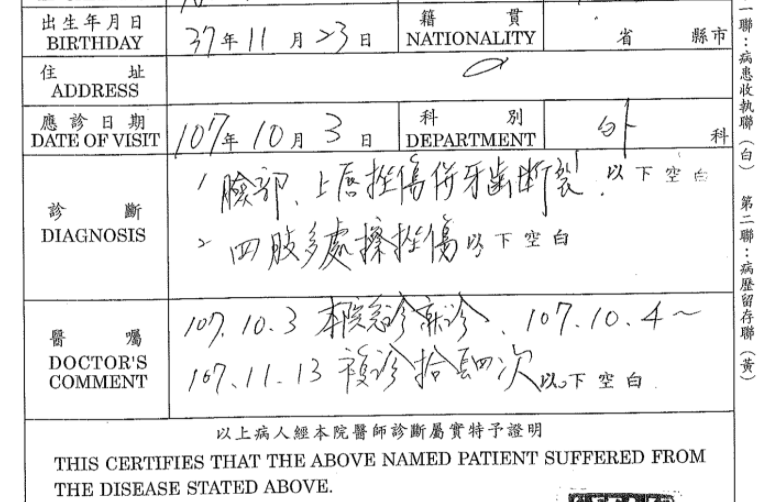 出生年月日 37年11月23日 籍貫 省 縣市
BIRTHDAY NATIONALITY
住址
ADDRESS
應診日期 107年10月3日 科別 外科
DATE OF VISIT DEPARTMENT
診斷
DIAGNOSIS
1 臉部、上唇挫傷併牙齒斷裂.以下空白
2 四肢多處擦挫傷以下空白
醫囑
DOCTOR'S
COMMENT
107.10.3 本院急診就診、107.10.4~
107.11.13 複診拾四次以下空白
以上病人經本院醫師診斷屬實特予證明
THIS CERTIFIES THAT THE ABOVE NAMED PATIENT SUFFERED FROM
THE DISEASE STATED ABOVE.
一聯:病患收執聯(白) 第二聯:病歷留存聯(黃)